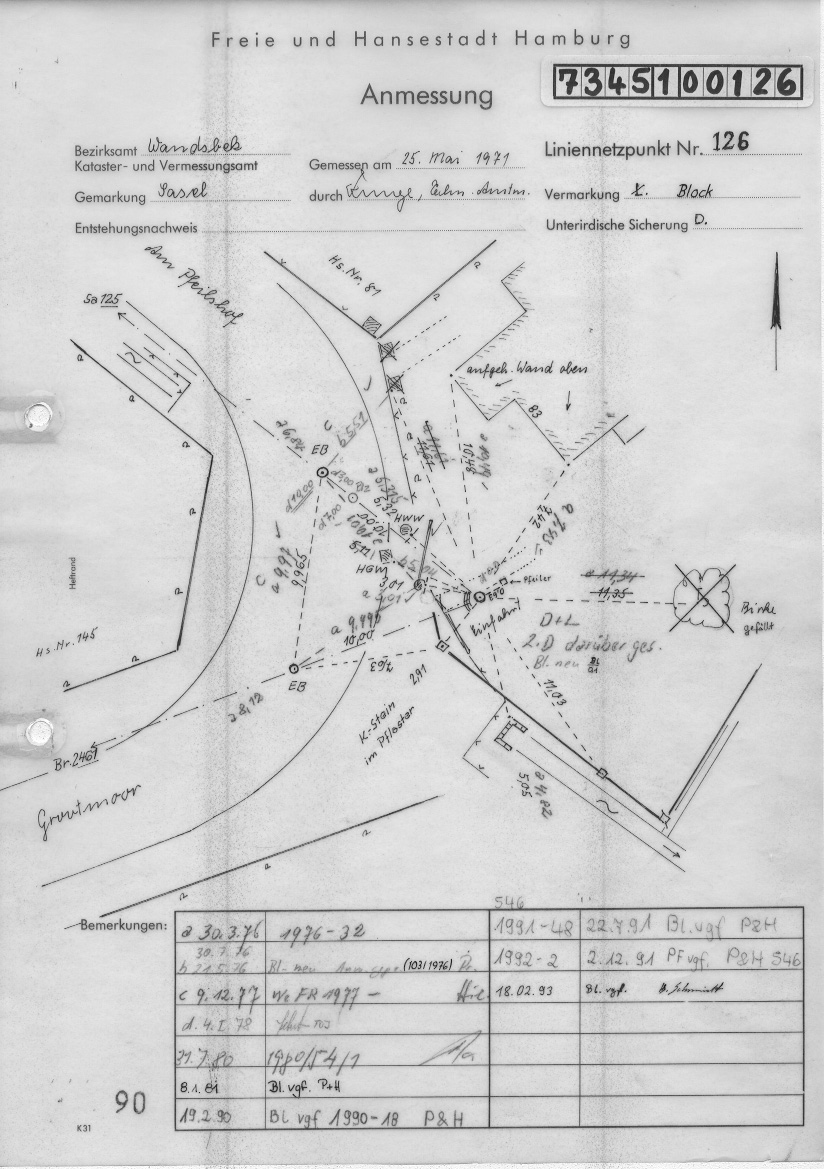 Freie und Hansestadt Hamburg
Anmessung
7345100126
Bezirksamt Wandsbek
Kataster- und Vermessungsamt
Gemessen am 25. Mai 1971
Liniennetzpunkt Nr. 126
Gemarkung Sasel
durch
Vermarkung Block
Entstehungsnachweis
Unterirdische Sicherung D.
Am Pfeilshof
Hs.Nr. 81
Sa 125
aufgeh. Wand oben
83
a 6,84
c
b 5,51
EB
d 19,00
d 7,00
10,48
7,42
a 7,43
6,32
HWW
5,11
HGW
3,01
c
a 9,97
9,965
Pfeiler
a 11,34
11,35
Birke
gefällt
Einfahrt
D+L
2.D darüber ges.
Bl. neu
a 9,995
10,00
7,63
EB
a 8,12
2,91
11,03
K-Stein
im Pflaster
Heftrand
Hs.Nr. 145
Br. 2461
Grootmoor
a 4,82
5,05
Bemerkungen:
a 30.3.76 1976-32
30.7.76
b 21.5.76 Bl. neu (1031976)
c 9.12.77 1977 -
d. 4.I.78
31.7.80 1980/54/1
8.1.81 Bl. vgf. P+H
19.2.90 Bl. vgf 1990-18 P&H
546
1991-48 22.7.91 Bl. vgf P&H
1992-2 2.12.91 PF vgf. P&H 546
18.02.93 Bl. vgf. Schmidt
90
K31